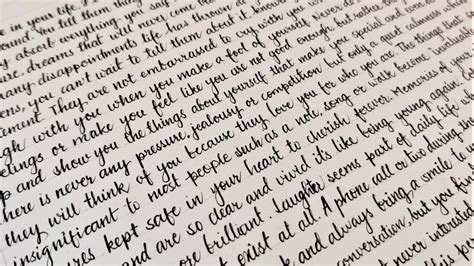 in your life? You
You tell them things
absorb everything you
dreams that will never come
many disappointments life has thrown
you can't wait to tell them about it, knowing
They are not embarrassed to cry with you
with you when you make a fool of yourself. Never do
or make you feel like you are not good enough but rather the
and show you the things about yourself that make you special and even
there is never any pressure, jealousy or competition but only a quiet calmness
they will think of you because they love you for who you are. The things that
insignificant to most people such as a note, song or walk become invaluable
kept safe in your heart to cherish forever. Memories of your
and are so clear and vivid its like being young again.
more brilliant. Laughter seems part of daily life
exist at all. A phone call or two during
and always bring a smile to
conversation, but you
never interested